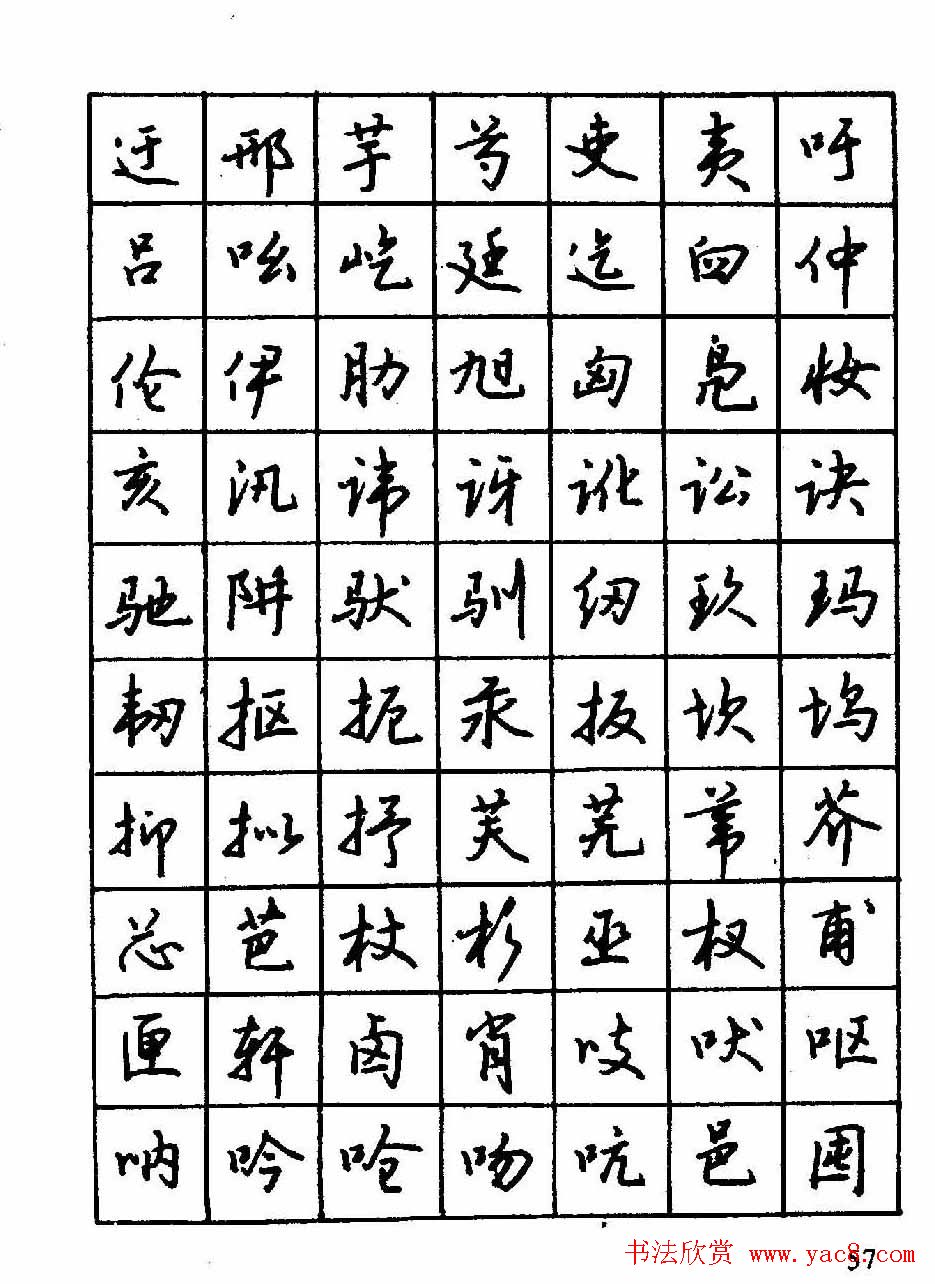 迂邢芋芍吏夷吁
吕吆屹廷迄囟仲
伦伊肋旭匈凫妆
亥汛讳讶讹讼诀
驰阱驮驯纫玖玛
韧抠扼汞扳坎坞
抑拟抒芙芜苇芥
芯芭杖杉巫杈甫
匣轩卤肖吱吠呕
呐吟呛吻吭邑囤
书法欣赏 www.yac8.com
57